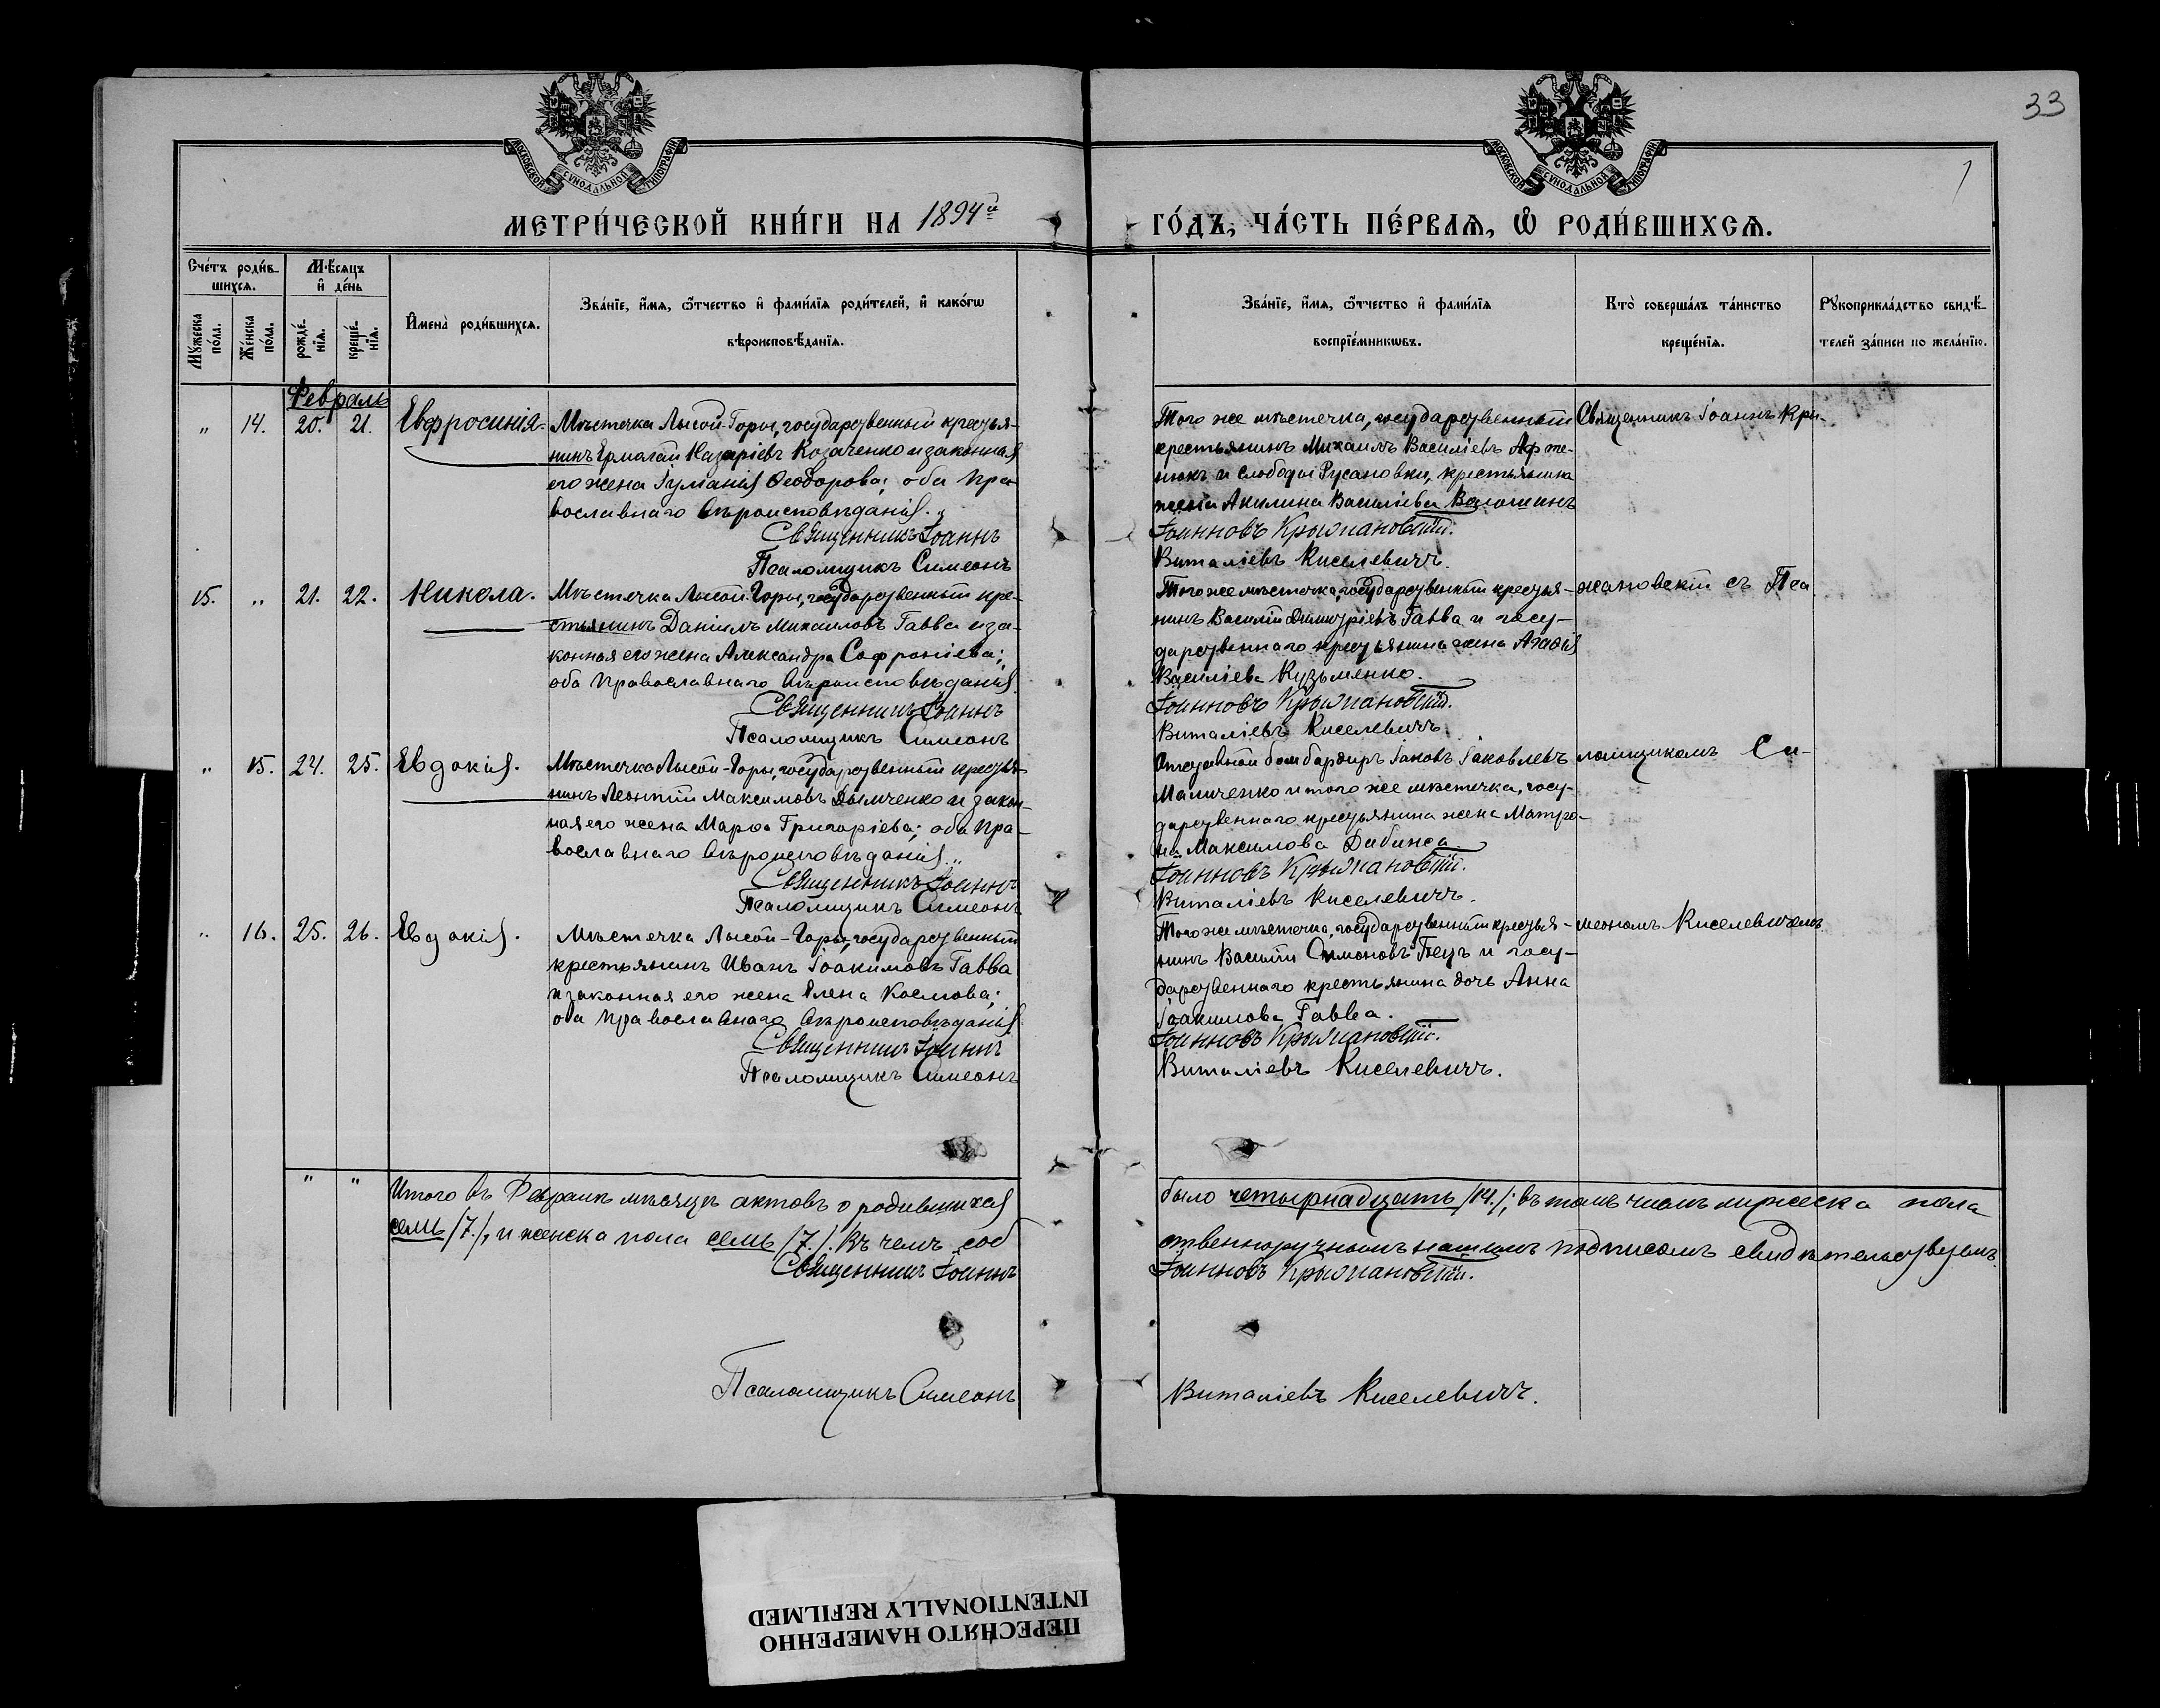 33
1
МОСКОВСКОЙ СѴНОДАЛЬНОЙ ТИПОГРАФІИ
МОСКОВСКОЙ СѴНОДАЛЬНОЙ ТИПОГРАФІИ
МЕТРИ́ЧЕСКОЙ КНИ́ГИ НА 1894й
ГО́ДЪ, ЧА́СТЬ ПЕ́РВАѦ, Ѽ РОДИ́ВШИХСѦ.
Сче́тъ роди́в-
шихсѧ.
Мѣсѧцъ
и҆ де́нь
Мꙋжеска по́ла.
Же́нска по́ла.
рожде́нїѧ.
креще́нїѧ.
И҆мена̀ роди́вшихсѧ.
Зва́нїе, и҆́мѧ, ѻ҆́тчество и҆ фами́лїѧ роди́телей, и҆ како́гѡ
вѣроисповѣ́данїѧ.
Зва́нїе, и҆́мѧ, ѻ҆́тчество и҆ фами́лїѧ
воспрїе́мникѡвъ.
Кто̀ соверша́лъ та́инство
креще́нїѧ.
Рꙋкоприкла́дство свидѣ́-
телей за́писи по жела́нїю.
Февраль
" 14. 20. 21. Евфросинія.
Мѣстечка Лысой-Горы, государственный крестья-
нинъ Ермолай Назаріевъ Козаченко и законная
его жена Іуліанія Ѳеодорова; оба Пра-
вославнаго вѣроисповѣданія.
Священникъ Іоаннъ
Псаломщикъ Симеонъ
Того же мѣстечка, государственный
крестьянинъ Михаилъ Василіевъ
и слободы Русановки, крестьянина
жена Акилина Василіева Волошинъ
Іоанновъ Крыжановскій.
Виталіевъ Киселевичъ.
Священникъ Іоаннъ Кры-
15. " 21. 22. Никола.
Мѣстечка Лысой-Горы, государственный кре-
стьянинъ Даніилъ Михаиловъ Гавва и за-
конная его жена Александра Софроніева;
оба Православнаго вѣроисповѣданія.
Священникъ Іоаннъ
Псаломщикъ Симеонъ
Того же мѣстечка, государственный крестья-
нинъ Василій Димитріевъ Гавва и госу-
дарственнаго крестьянина жена Агафія
Василіева Кузьменко.
Іоанновъ Крыжановскій.
Виталіевъ Киселевичъ.
жановскій съ Пса
" 15. 24. 25. Евдокія.
Мѣстечка Лысой-Горы, государственный крестья-
нинъ Леонтій Максимовъ Дымченко и закон-
ная его жена Марѳа Григоріева; оба Пра-
вославнаго вѣроисповѣданія.
Священникъ Іоаннъ
Псаломщикъ Симеонъ
Отставной бомбардиръ Іаковъ Іаковлевъ
Маличенко и того же мѣстечка, госу-
дарственнаго крестьянина жена Матро-
на Максимова Дибинса.
Іоанновъ Крыжановскій.
Виталіевъ Киселевичъ.
ломщикомъ Си-
" 16. 25. 26. Евдокія.
Мѣстечка Лысой-Горы, государственный
крестьянинъ Иванъ Іоакимовъ Гавва
и законная его жена Елена Космова;
оба Православнаго вѣроисповѣданія.
Священникъ Іоаннъ
Псаломщикъ Симеонъ
Того же мѣстечка, государственный крестья-
нинъ Василій Симоновъ и госу-
дарственнаго крестьянина дочь Анна
Іоакимова Гавва.
Іоанновъ Крыжановскій.
Виталіевъ Киселевичъ.
меономъ Киселевичемъ
" "
Итого въ Февралѣ мѣсяцѣ актовъ о родившихся было четырнадцать /14./; въ томъ числѣ мужеска пола
семь /7./, и женска пола семь /7./. Въ чемъ соб ственноручнымъ нашимъ подписомъ свидѣтельствуемъ.
Священникъ Іоаннъ Іоанновъ Крыжановскій.
Псаломщикъ Симеонъ Виталіевъ Киселевичъ.
ПЕРЕСНЯТО НАМЕРЕННО
INTENTIONALLY REFILMED